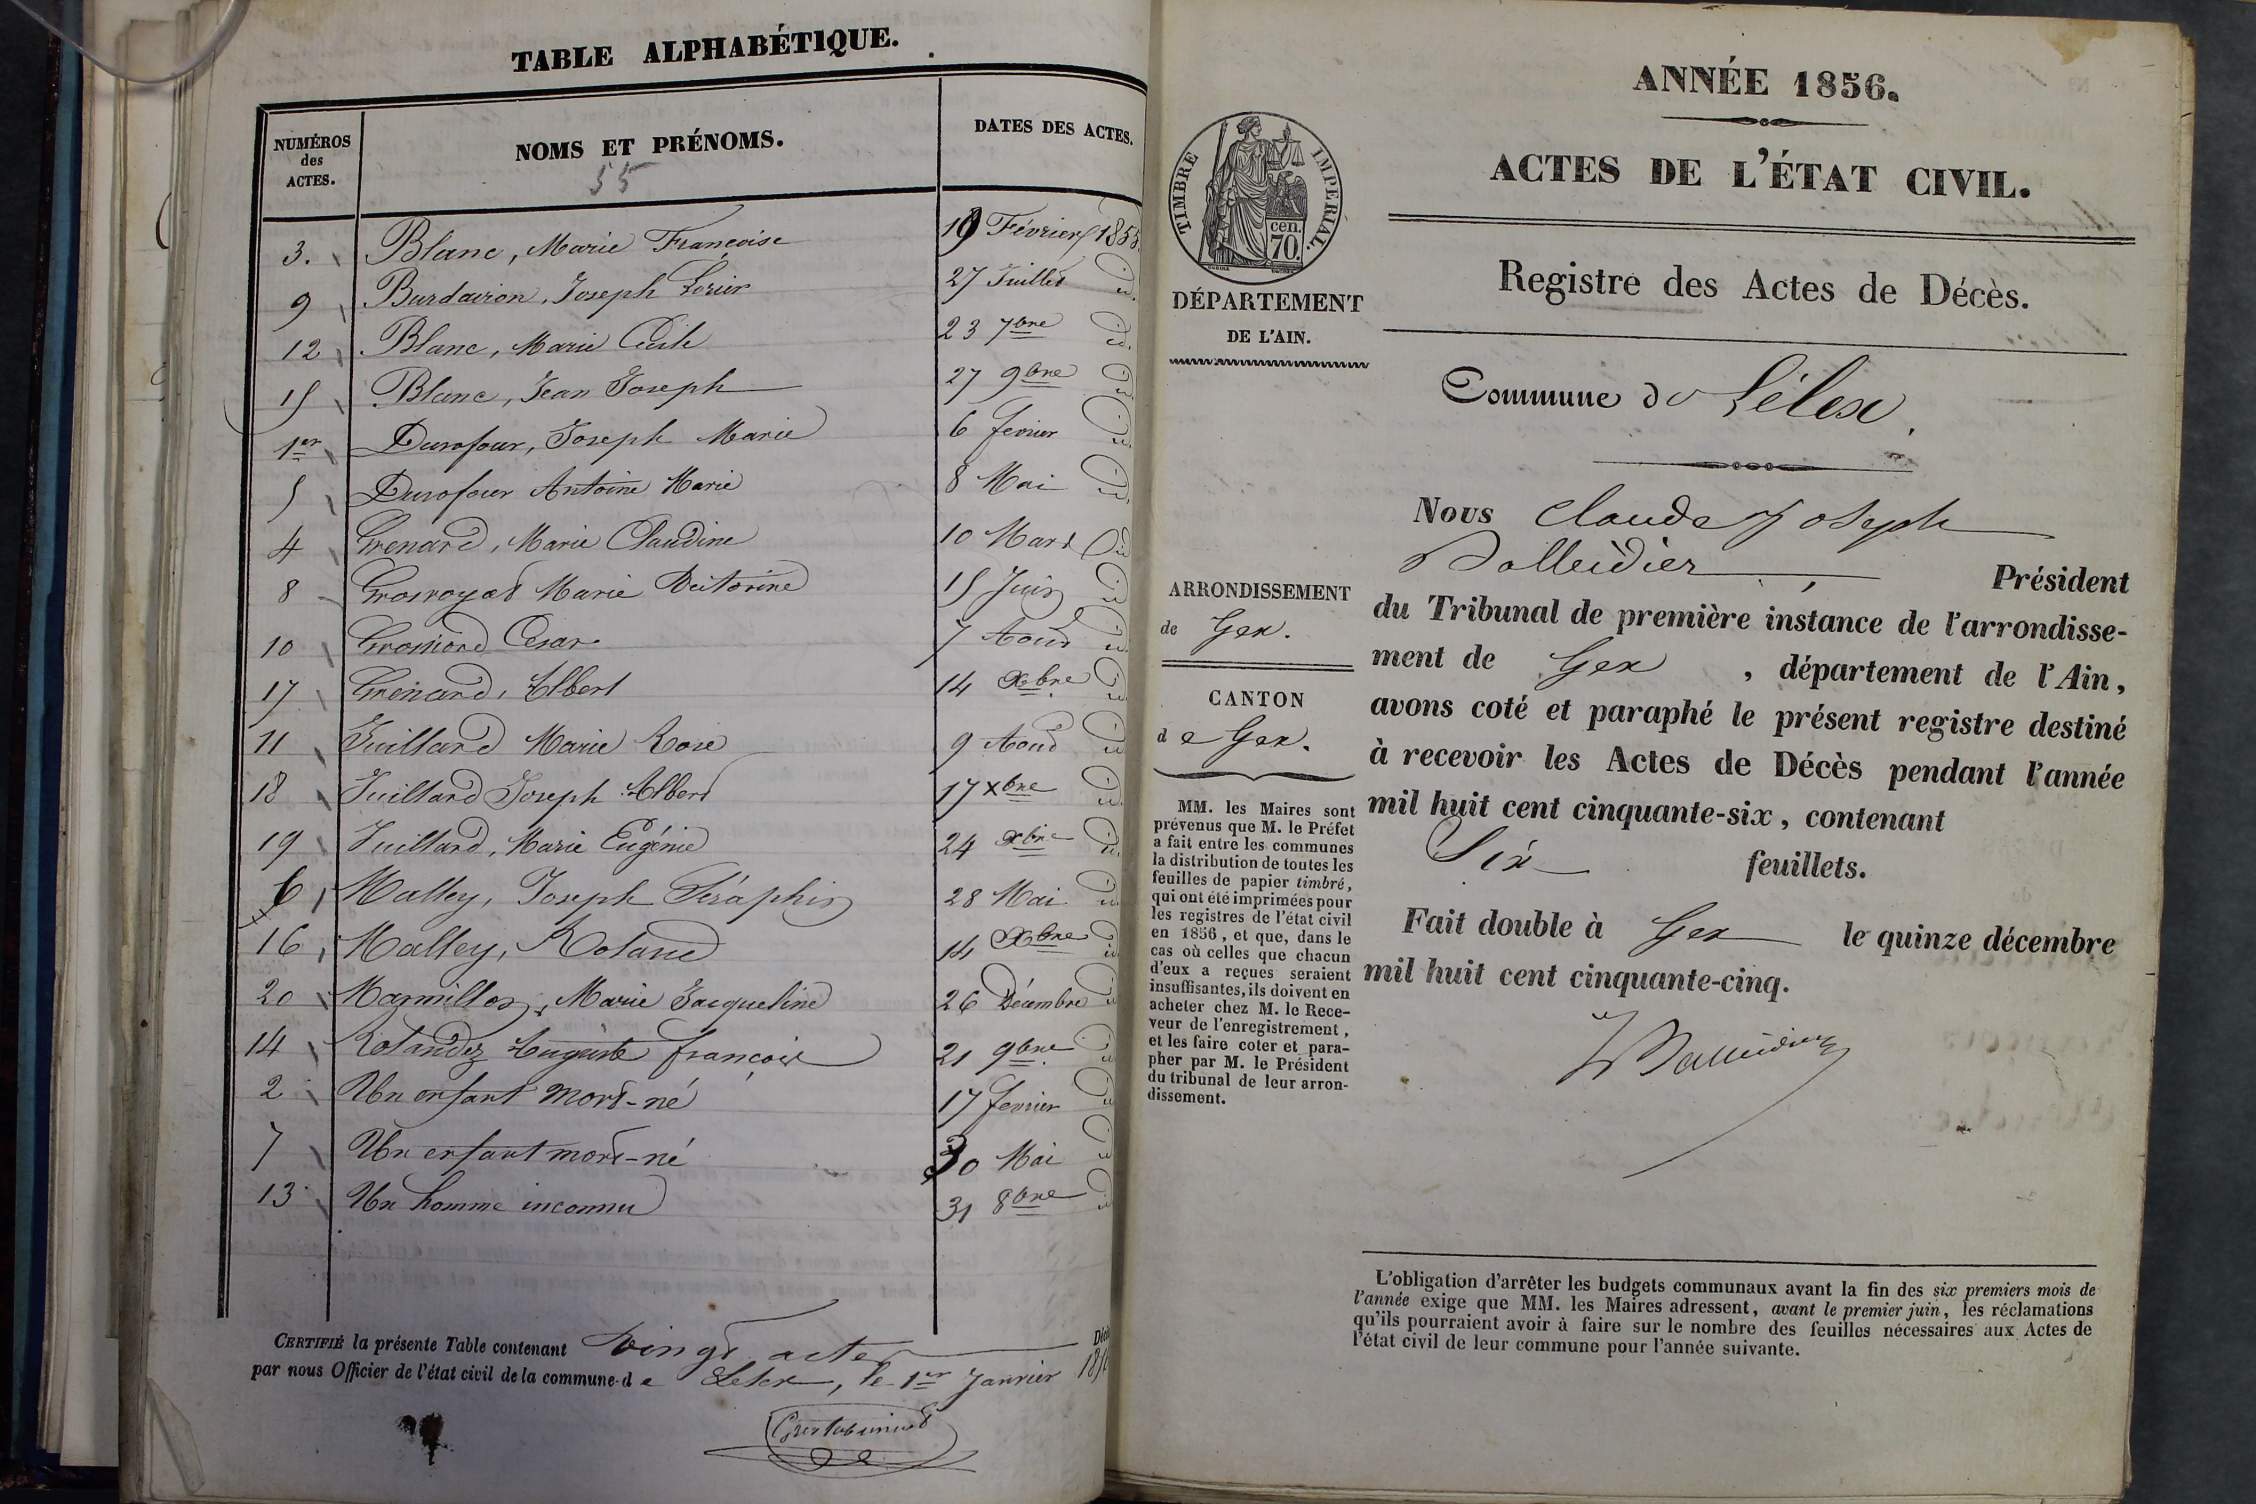 TABLE ALPHABÉTIQUE.
NUMÉROS des ACTES.
NOMS ET PRÉNOMS.
DATES DES ACTES.
55
3. Blanc, Marie Françoise 19 Février 1855
9 Joseph 27 Juillet id.
12 Blanc, Marie Cécile 23 7bre id.
15 Blanc, Jean Joseph 27 9bre id.
1er Durafour, Joseph Marie 6 fevrier id.
5 Durafour Antoine Marie 8 Mai id.
4 Grenard, Marie Claudine 10 Mars id
8 Marie 15 Juin id
10 César 7 Aout id
17 Grenard, Albert 14 Xbre id
11 Juilland Marie Rose 9 Aout id
18 Juilland Joseph Albert 17 Xbre id.
19 Juilland, Marie Eugénie 24 Xbre id.
6 Malley, Joseph Séraphin 28 Mai id
16 Malley, Roland 14 Xbre id
20 Marmillon, Marie Jacqueline 26 Décembre id
14 Rolandez Auguste françois 21 9bre id
2 Un enfant mort-né 17 fevrier id
7 Un enfant mort-né 30 Mai id
13 Un homme inconnu 31 8bre id
CERTIFIÉ la présente Table contenant vingt actes
par nous Officier de l'état civil de la commune de Lelex, le 1er Janvier
ANNÉE 1856.
ACTES DE L'ÉTAT CIVIL.
TIMBRE IMPERIAL.
cen.
70.
Registre des Actes de Décès.
DÉPARTEMENT
DE L'AIN.
Commune de Lélex.
Nous Claude Joseph
Balleidier, Président
du Tribunal de première instance de l'arrondisse-
ment de Gex, département de l'Ain,
avons coté et paraphé le présent registre destiné
à recevoir les Actes de Décès pendant l'année
mil huit cent cinquante-six, contenant
Six feuillets.
Fait double à Gex le quinze décembre
mil huit cent cinquante-cinq.
Balleidier
ARRONDISSEMENT
de Gex.
CANTON
de Gex.
MM. les Maires sont
prévenus que M. le Préfet
a fait entre les communes
la distribution de toutes les
feuilles de papier timbré,
qui ont été imprimées pour
les registres de l'état civil
en 1856, et que, dans le
cas où celles que chacun
d'eux a reçues seraient
insuffisantes, ils doivent en
acheter chez M. le Rece-
veur de l'enregistrement,
et les faire coter et para-
pher par M. le Président
du tribunal de leur arron-
dissement.
L'obligation d'arrêter les budgets communaux avant la fin des six premiers mois de
l'année exige que MM. les Maires adressent, avant le premier juin, les réclamations
qu'ils pourraient avoir à faire sur le nombre des feuilles nécessaires aux Actes de
l'état civil de leur commune pour l'année suivante.